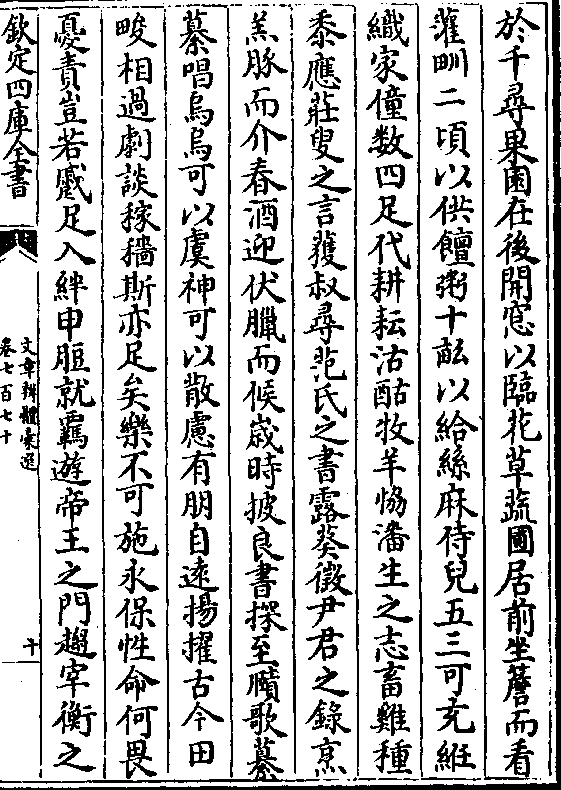 於千尋果園在後開窓以臨花草蔬圃居前坐簷而看
灌畎二頃以供饘粥十畝以給絲麻侍兒五三可充絍
織家僮数四足代耕耘沽酤牧羊恊潘生之志畜雞種
黍應莊叟之言蒦叔尋范氏之書露葵徵尹君之錄烹
羔豚而介春酒迎伏臘而候歳時披良書探至賾歌纂
纂唱烏烏可以虞神可以散慮有朋自遠揚搉古今田
畯相過劇談稼穡斯亦足矣樂不可施永保性命何畏
憂責豈若蹙足入絆申脰就羈遊帝王之門趨宰衡之
欽定四庫全書
文章辨體彚選
卷七百七十
十